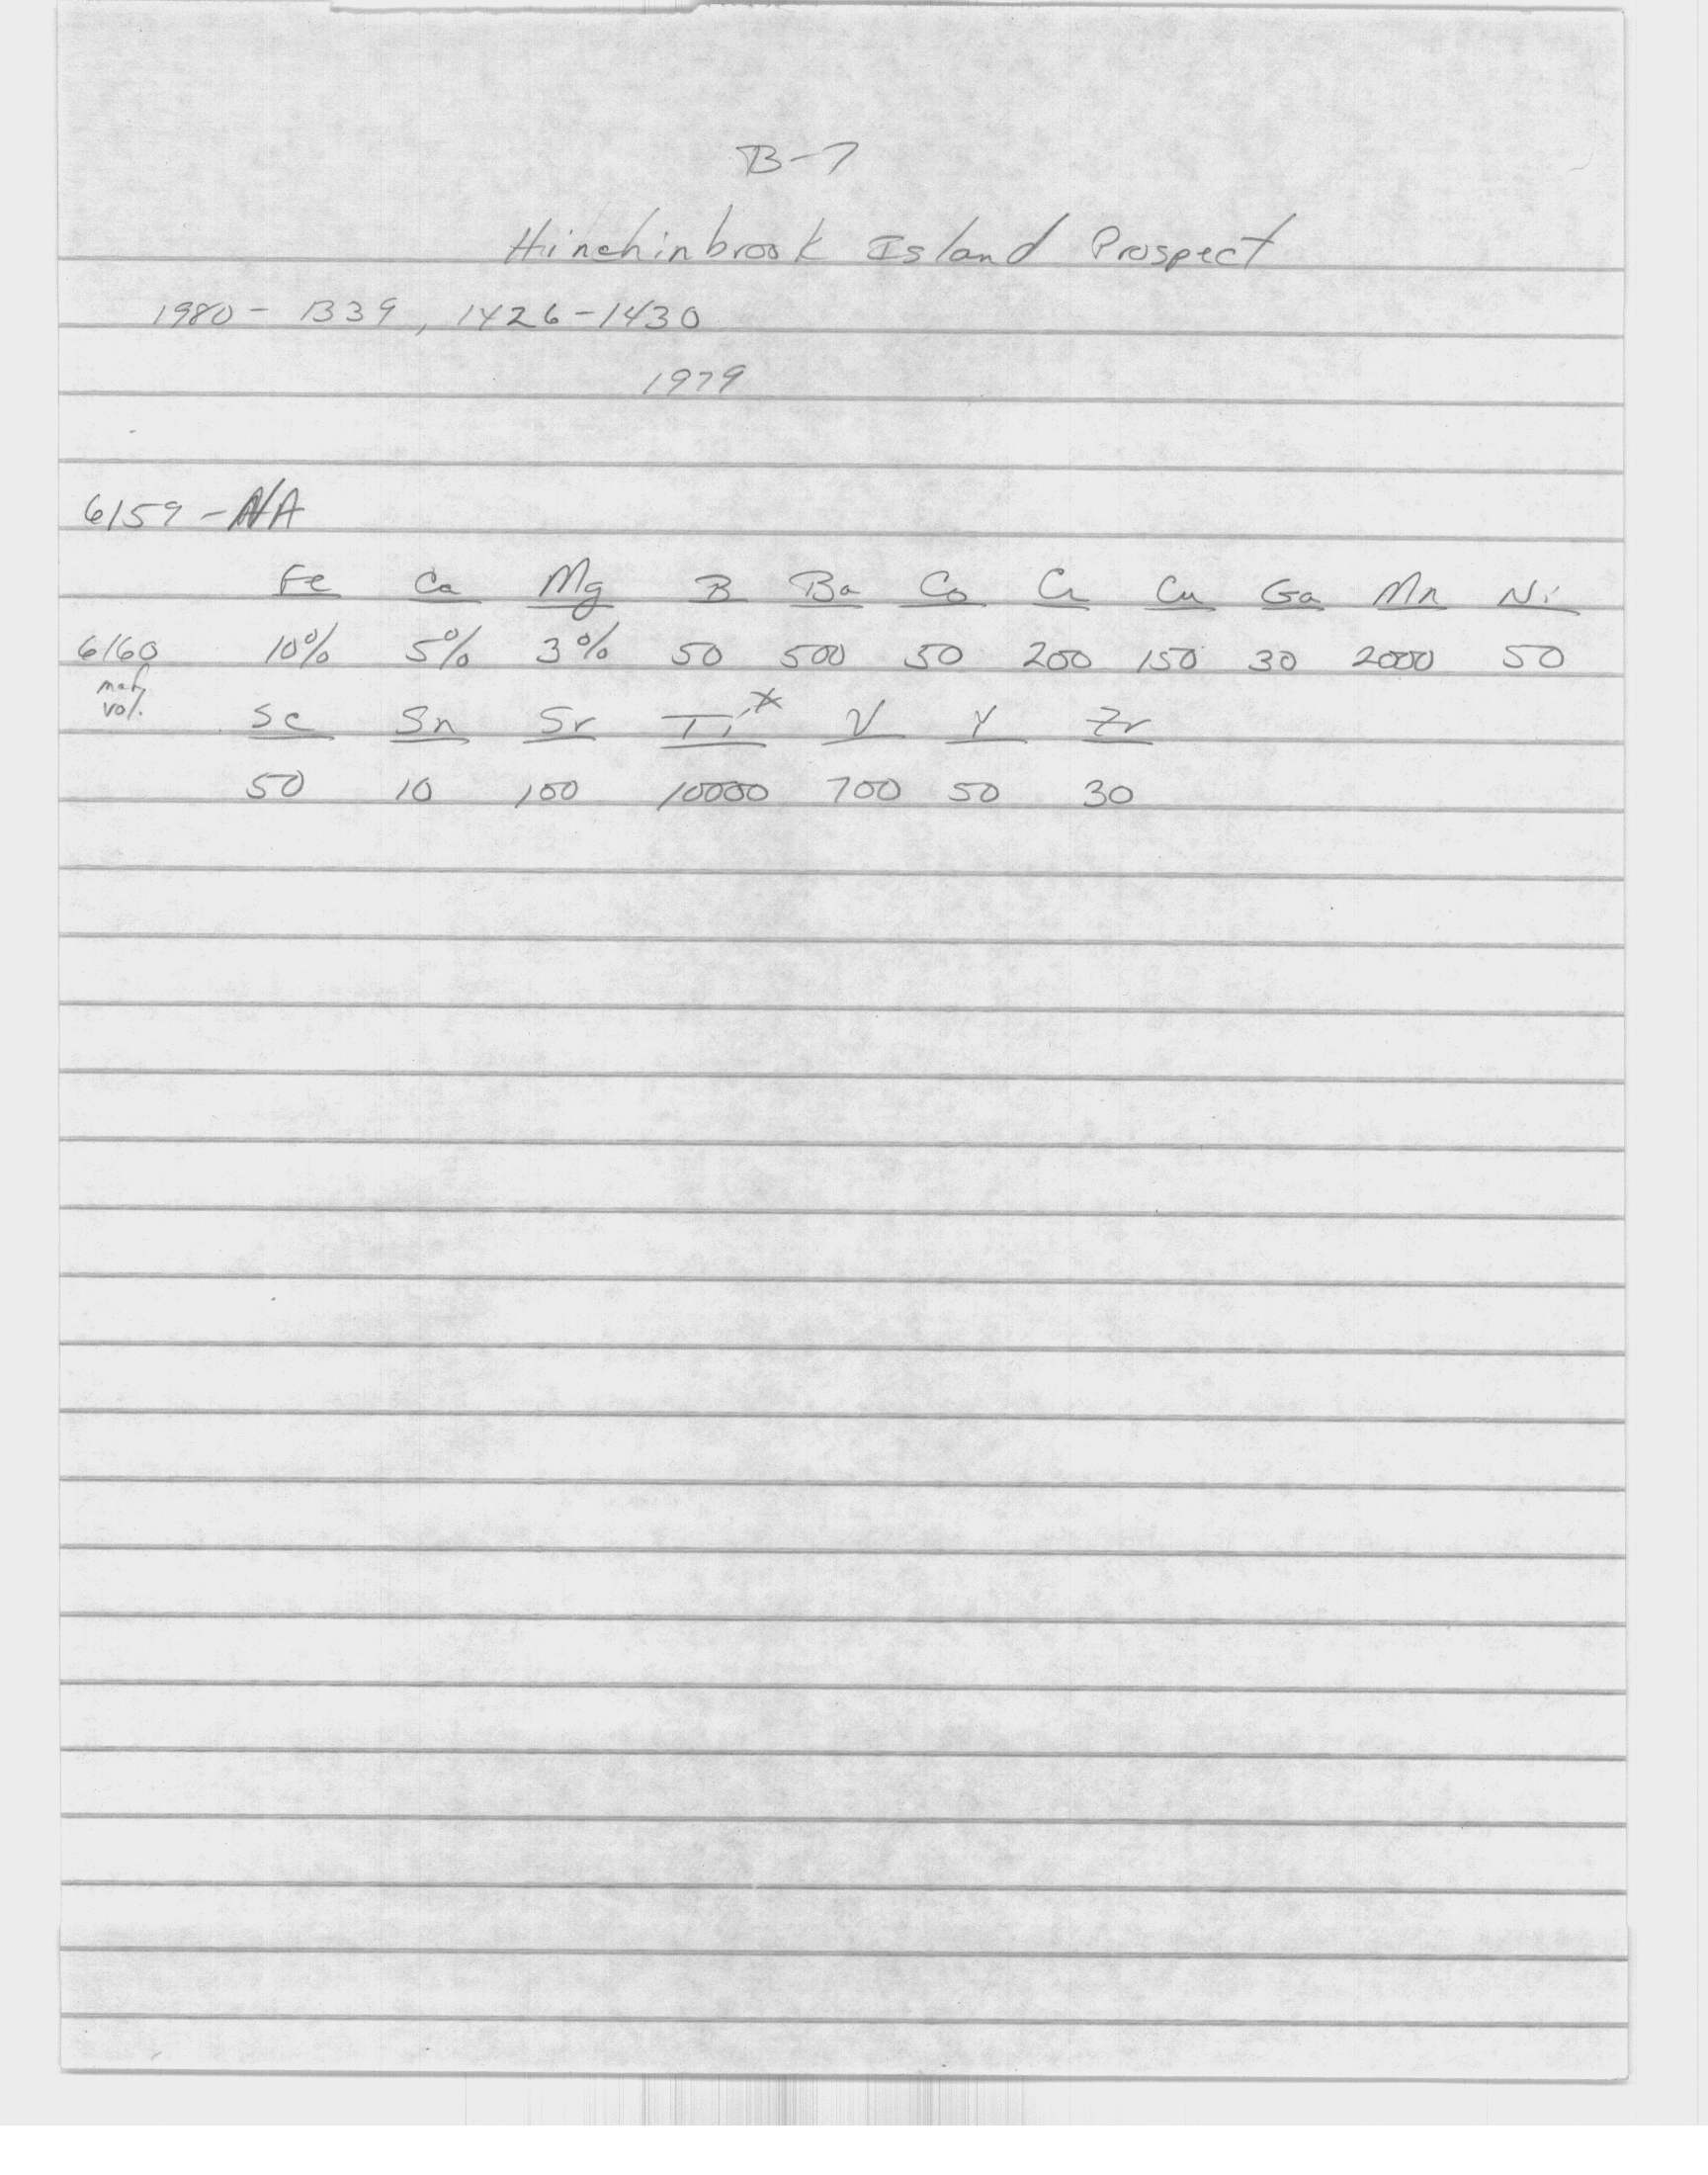 B-7
Hinchinbrook Island Prospect
1980 - 1339, 1426-1430
1979
6159 - N/A
Fe Ca Mg B Ba Co Cr Cu Ga Mn Ni
6160 10% 5% 3% 50 500 50 200 150 30 2000 50
maf.
vol.
Sc Sn Sr Ti* V Y Zr
50 10 100 10000 700 50 30